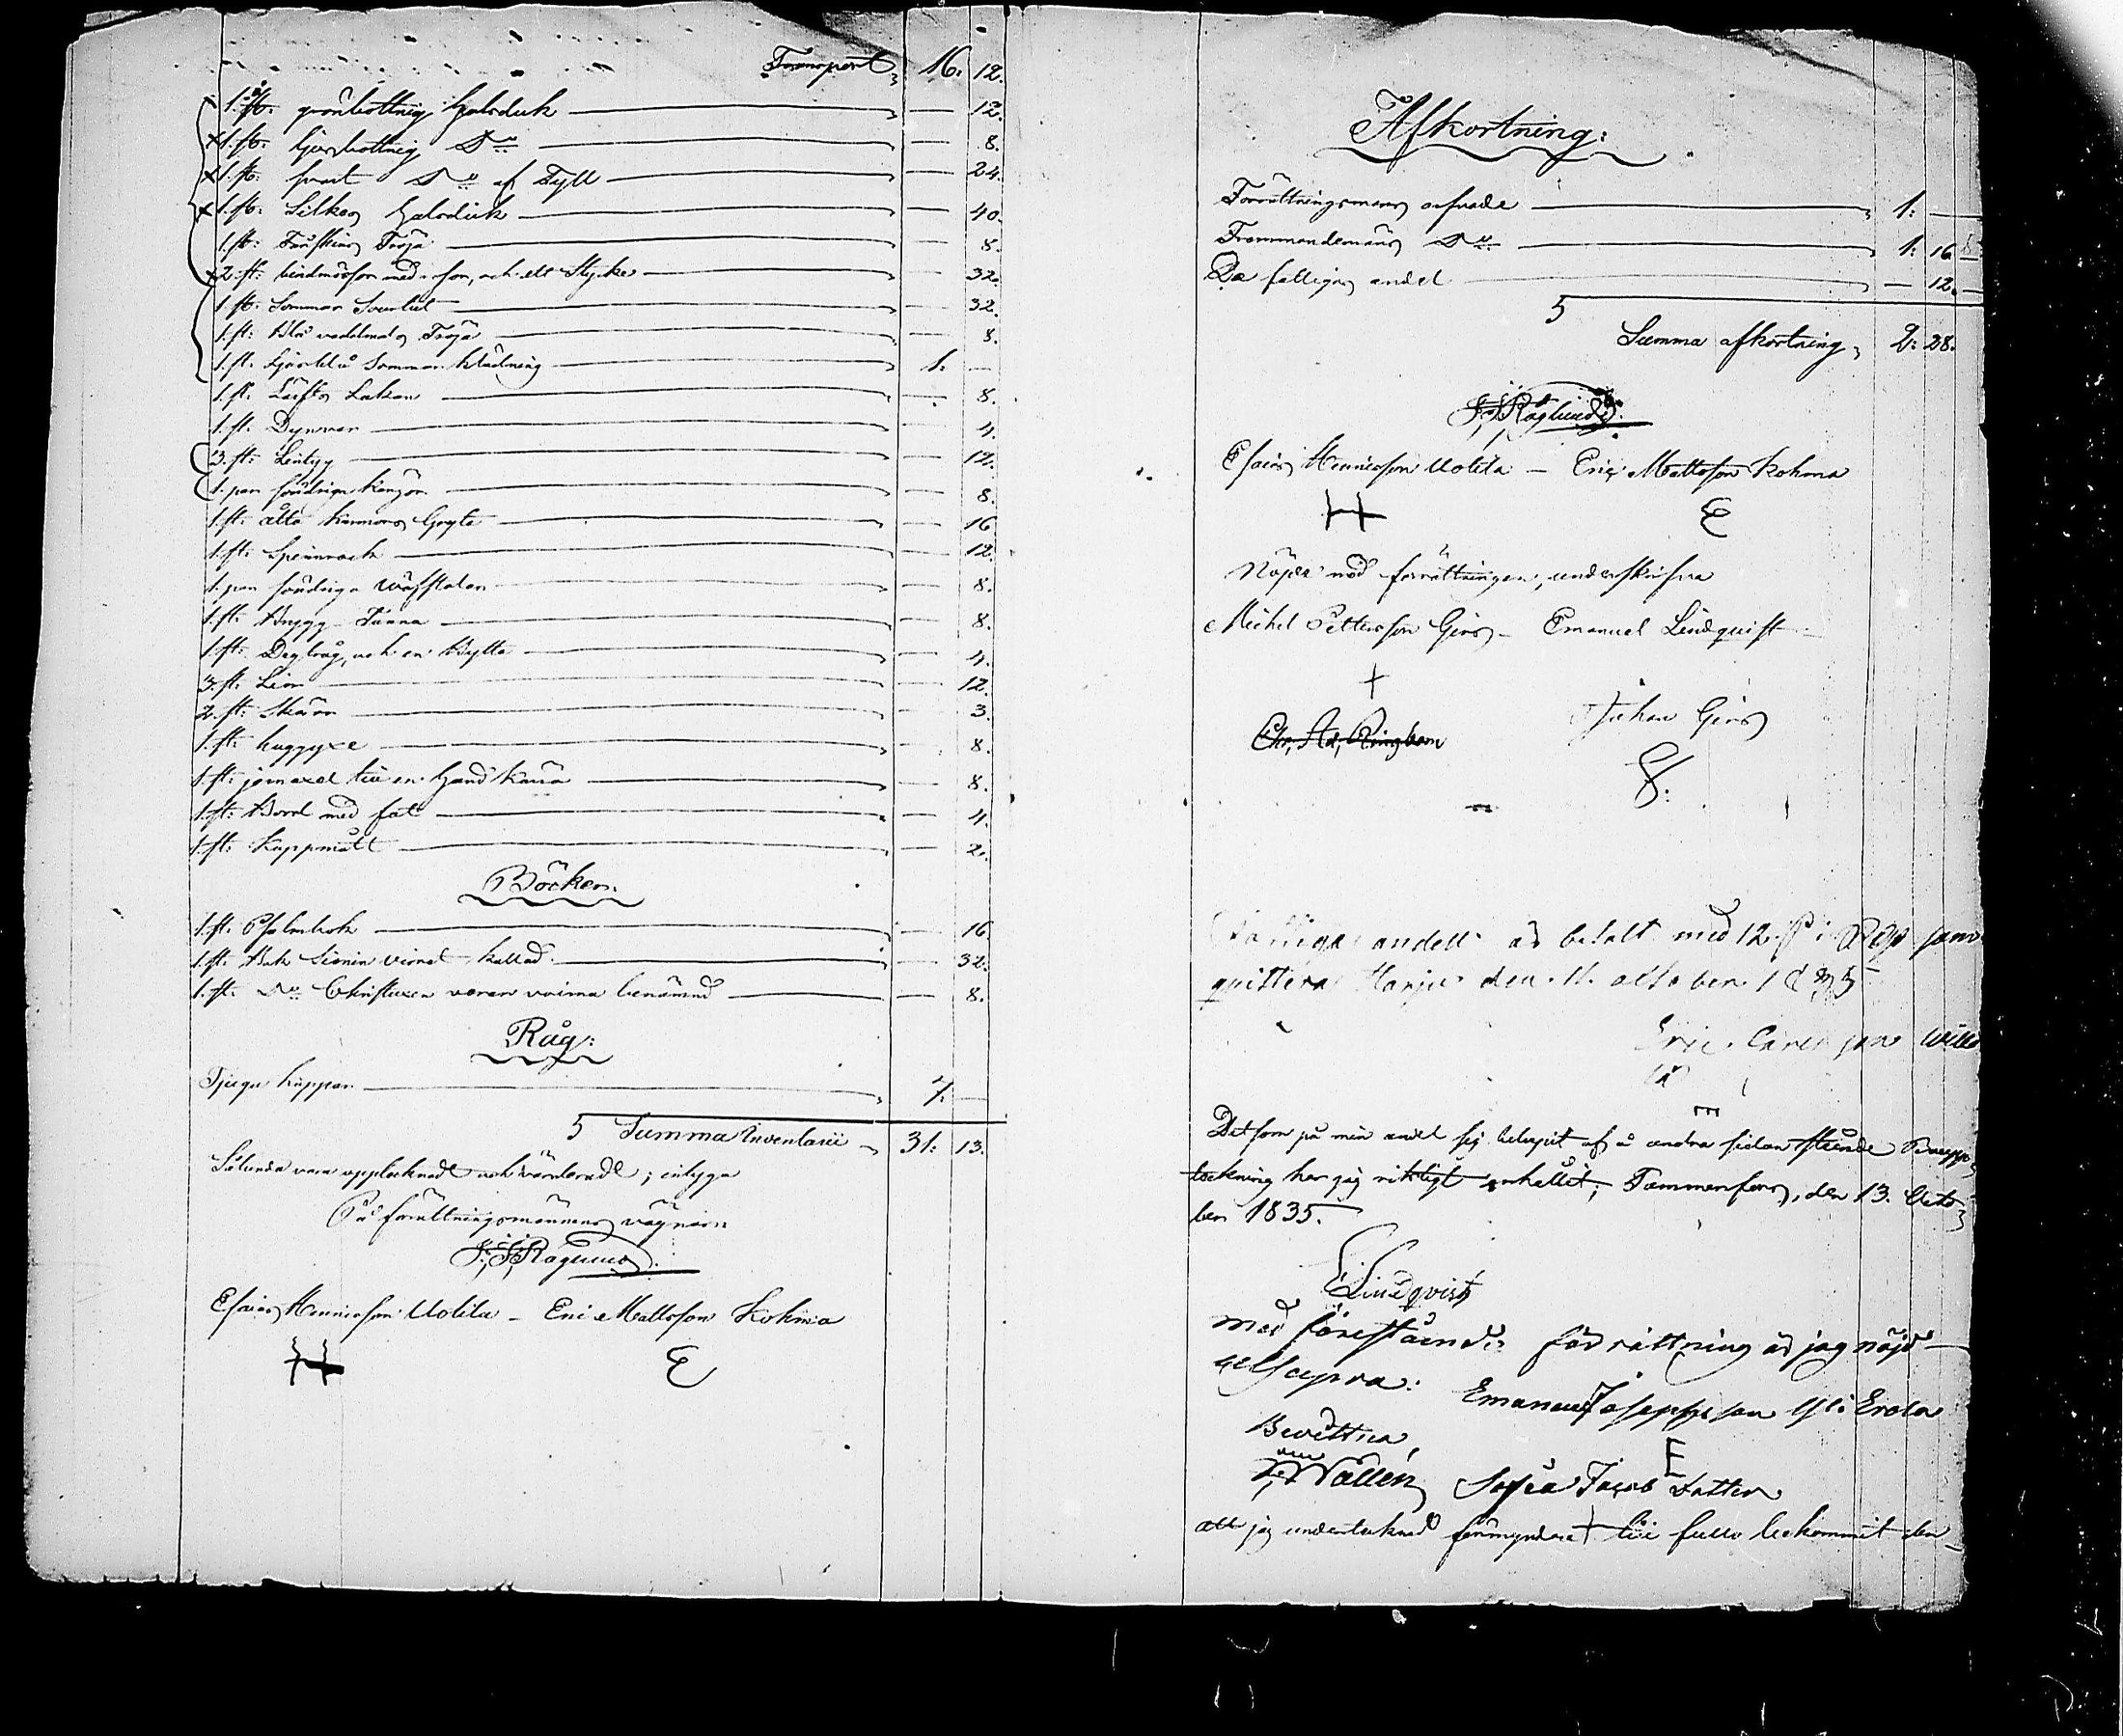 Transport 16. 12.
1. st. grönbottnig halsduk — 12.
1. st. ljusbottnig D:o — 8.
1. st. svart D:o af Tyll — 24.
1. st. Silkes halsduk — 40.
1. st. Tröja — 8.
2. st. bindmössor med och ett Stycke — 32.
1. st. Sommar Sourtut — 32.
1. st. Blå vadmals Tröja — 8.
1. st. ljusblå Sommar klädning 1. —
1. st. Lärfts Lakan — 8.
1. st. Dynvar — 4.
3. st. Lintyg — 12.
1. par söndriga kängor — 8.
1. st. åtta kannors Gryta — 16
1. st. Spinnrock — 12.
1. par söndriga — 8.
1. st. Brygg Tunna — 8.
1. st. Degtråg, och en Bytta — 4.
3. st. Liar — 12.
2. st. Skäror — 3.
1. st. huggyxe — 8.
1. st. jernaxel till en Hand kärra — 8.
1. st. Bord med fot — 4.
1. st. Kappmått — 2.
Böcker.
1. st. Psalmbok — 16.
1. st. Bok Sionin virret kallad — 32.
1. st. D:o Christuxen veren voima benämnd — 8.
Råg:
Tjugu kappar 7. —
Summa Inventarii 31: 13.
Sålunda vara upptecknadt och värderadt; intyga
På förrättningsmännens vägnar
J. J. Råglund
Esaias Henricsson Uotila – Eric Mattsson Kohma
H E
Afkortning:
Förrättningsmans arfvode 1: —
Frammandemans D:o 1: 16
De fattigas andel — 12.
Summa afkortning, 2: 28.
J. J. Råglund
Esaias Henricsson Uotila – Eric Mattsson Kohma
H E
Nöjde med förrättningen, underskrifva
Michel Pettersson Gers – Emanuel Lindquist
+
Johan Gers
Chr. Ad. Ringbom
8.
Fattigas andell är betalt med 12 som
quitterar Harju den 11. october 1835
Eric Carlsson Willo
lä
Det som på min andel sig belupit af å andra sidan stående Boupp-
teckning har jag riktigt erhållit; Tammerfors, den 13. Octo-
ber 1835.
E Lindqvist
Med förestående förrättning är jag nöjd
ut supra: Emanuel Josephsson Yli Erola
Bevittna
Wallén Sofia Jacobs Dotter
E
att jag undertecknad förmyndare till fullo bekommit den